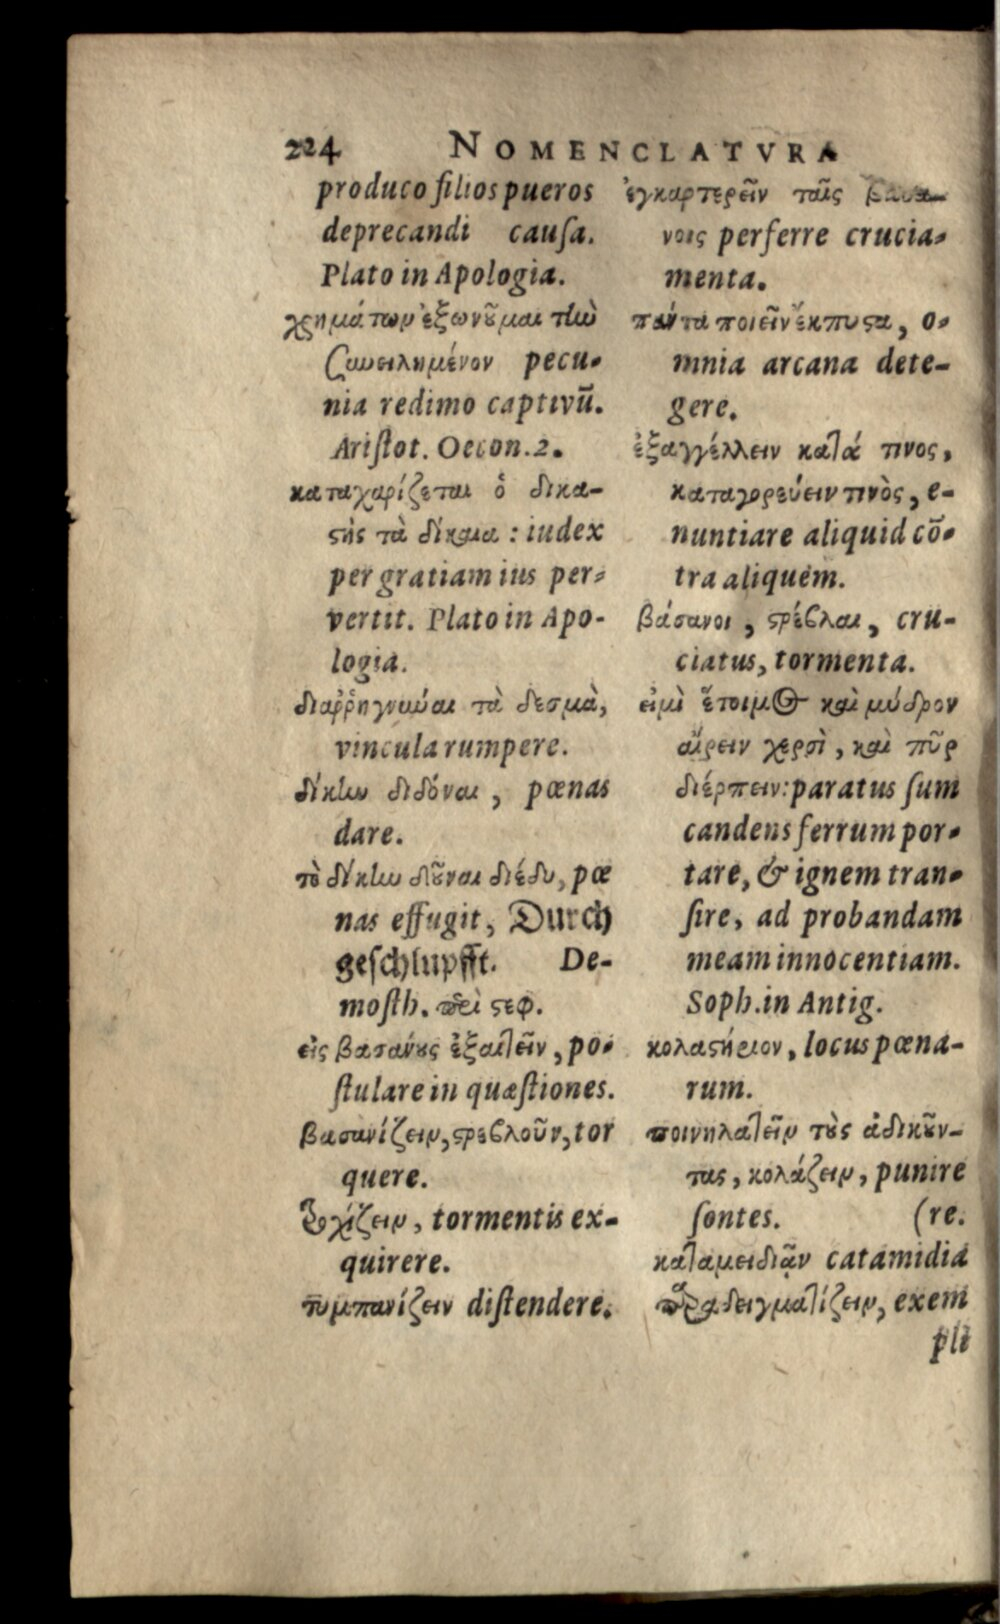 224 NOMENCLATVRA
produco filios pueros
deprecandi causa.
Plato in Apologia.
χρημάτων ἐξωνοῦμαι τὴν
συνειλημένον pecu-
nia redimo captivū.
Aristot. Oecon. 2.
καταχαρίζεται ὁ δικα-
στὴς τὰ δίκαια : iudex
per gratiam ius per-
vertit. Plato in Apo-
logia.
διαῤῥηγνύναι τὰ δεσμὰ,
vincula rumpere.
δίκην διδόναι, pœnas
dare.
τὸ δίκην δοῦναι διέδυ, pœ
nas effugit, Durch
geschlupfft. De-
mosth. περὶ στεφ.
εἰς βασάνους ἐξαιτεῖν, po-
stulare in quæstiones.
βασανίζειν, στρεβλοῦν, tor
quere.
τροχίζειν, tormentis ex-
quirere.
τυμπανίζειν distendere.
ἐγκαρτερεῖν ταῖς βασα-
νοις perferre crucia-
menta.
πάντα ποιεῖν ἔκπυστα, o-
mnia arcana dete-
gere.
ἐξαγγέλλειν κατά τινος,
καταγορεύειν τινὸς, e-
nuntiare aliquid cō-
tra aliquem.
βάσανοι, στρέβλαι, cru-
ciatus, tormenta.
εἰμὶ ἕτοιμος καὶ μύδρον
αἴρειν χερσὶ, καὶ πῦρ
διέρπειν: paratus sum
candens ferrum por-
tare, & ignem tran-
sire, ad probandam
meam innocentiam.
Soph. in Antig.
κολαστήριον, locus pœna-
rum.
ποινηλατεῖν τοὺς ἀδικοῦν-
τας, κολάζειν, punire
sontes. (re.
καταμειδιᾷν catamidia
παραδειγματίζειν, exem
pli